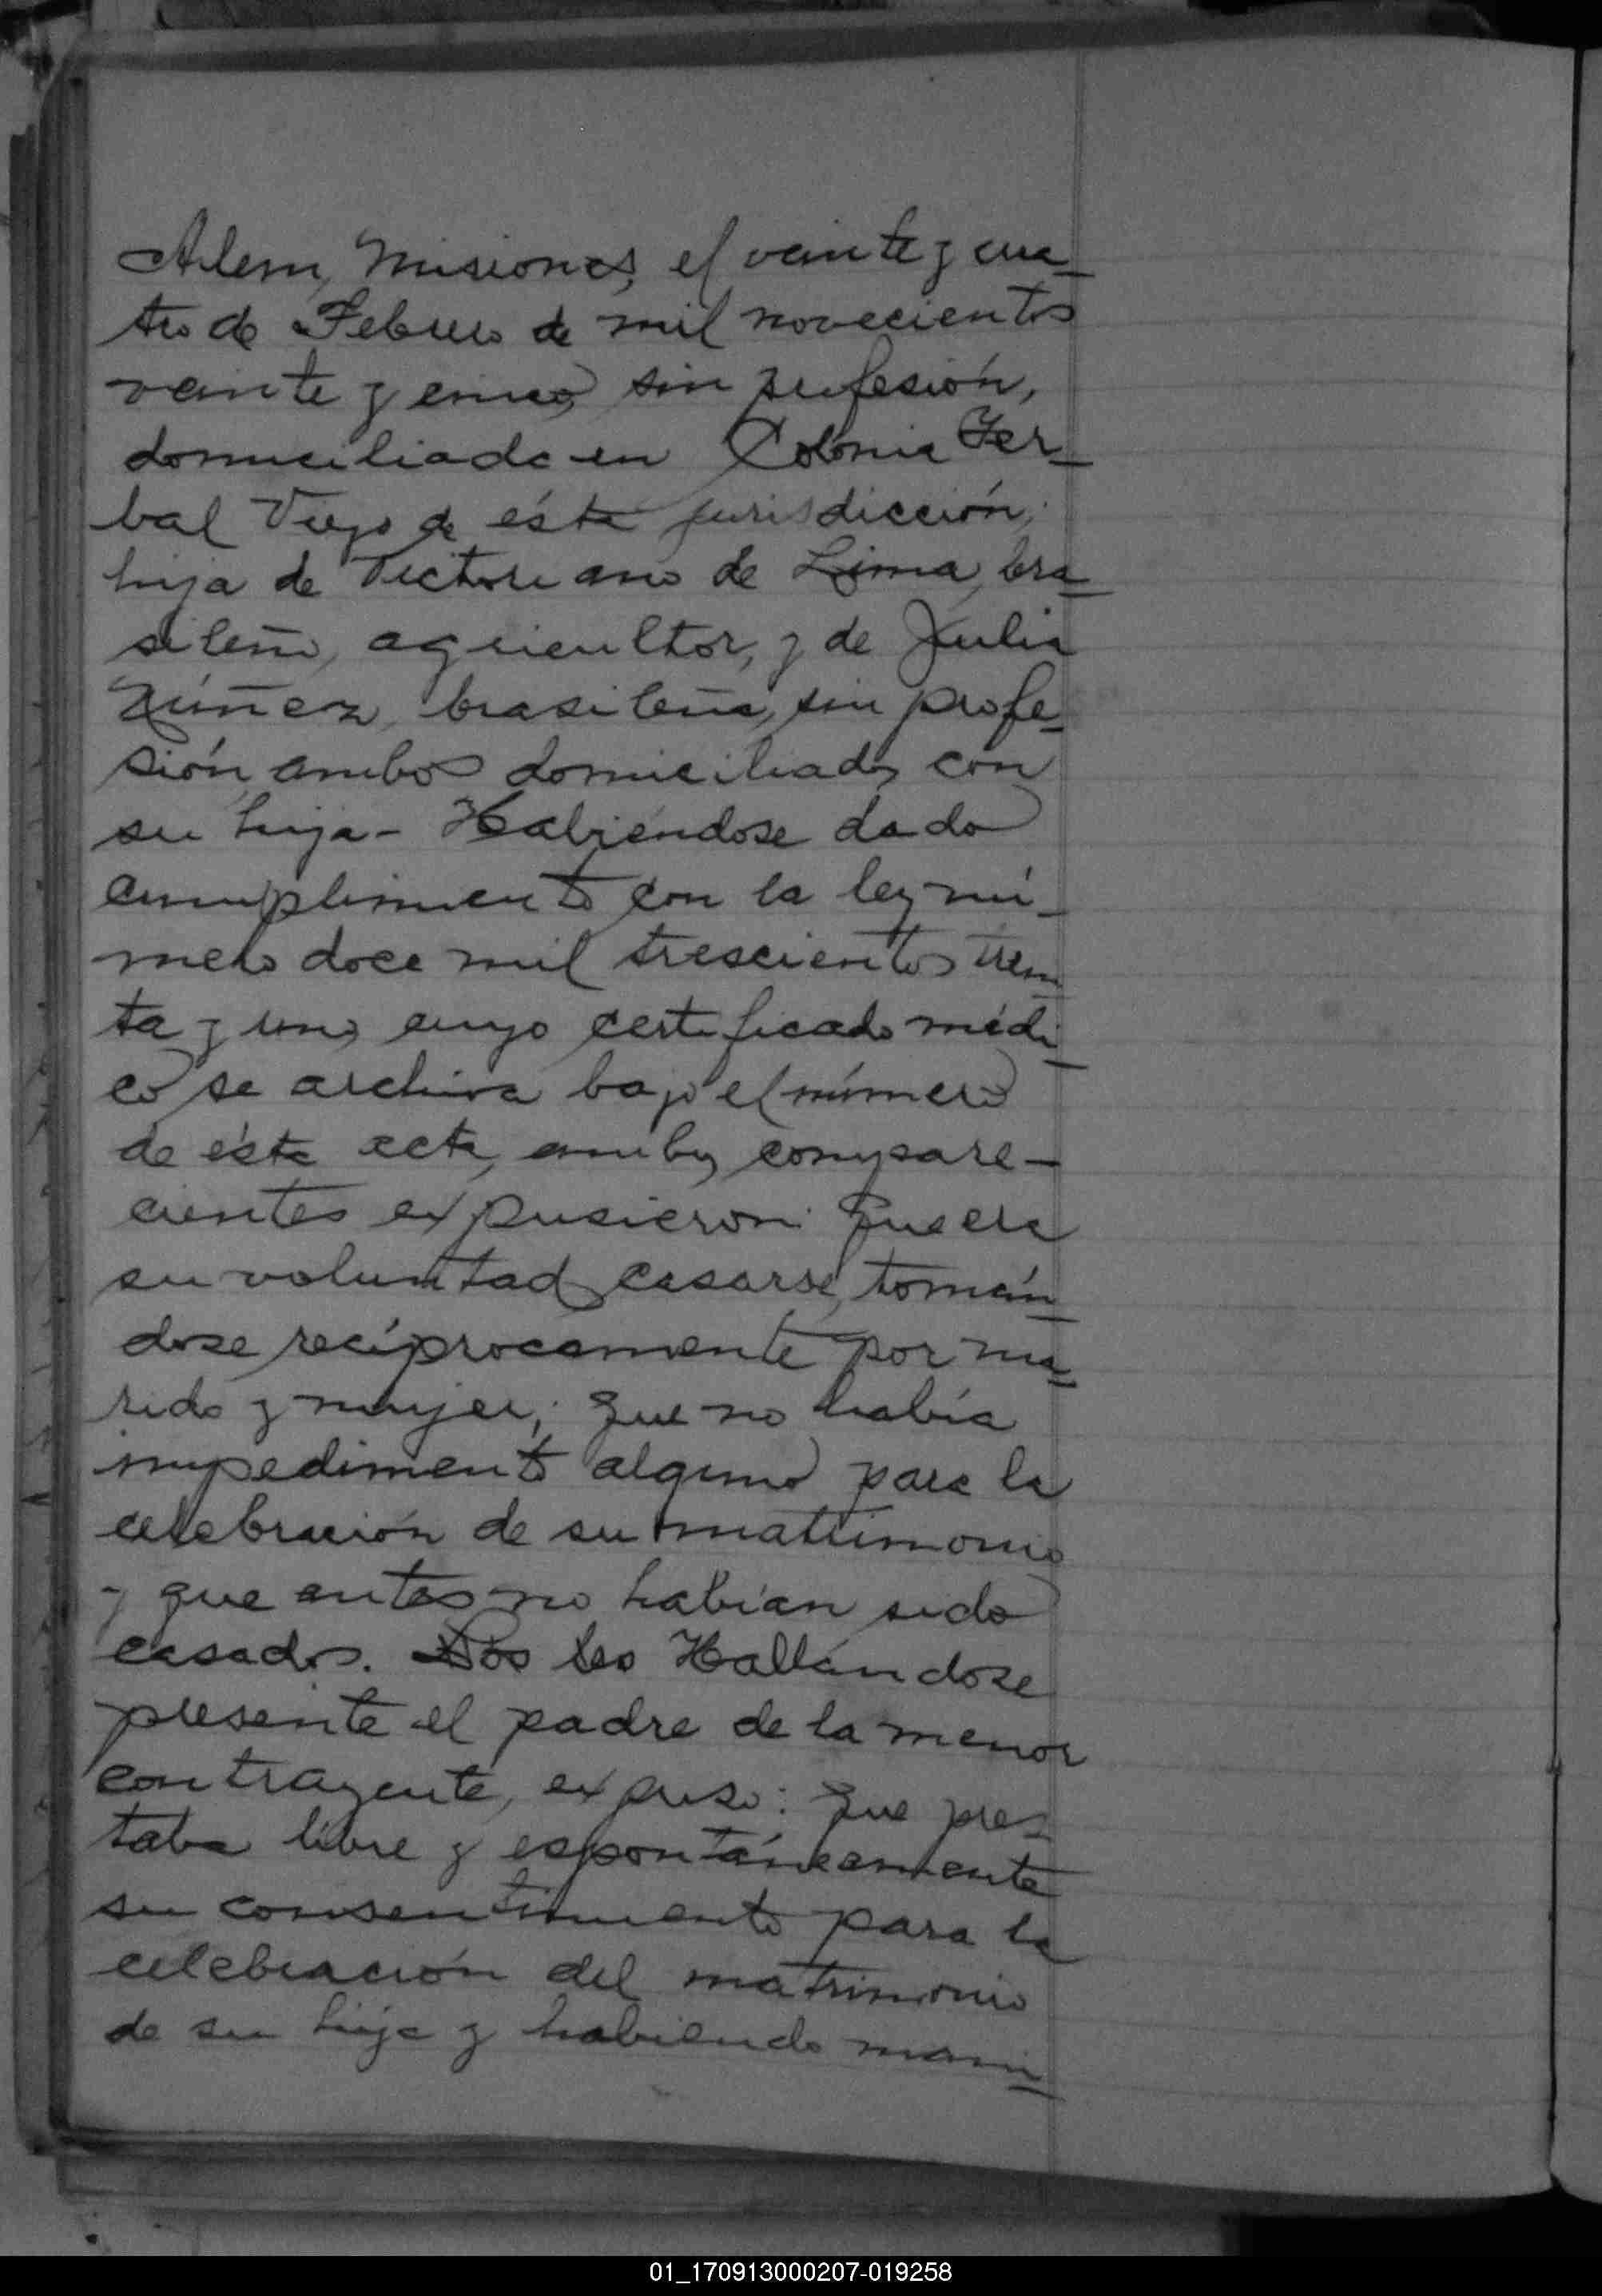 Alem, Misiones, el veinte y cua-
tro de Febrero de mil novecientos
veinte y cinco, sin profesión,
domiciliada en Colonia Yer-
bal Viejo de ésta jurisdicción;
hija de Victoriano de Lima, bra-
sileño, agricultor, y de Julia
Núñez, brasileña, sin profe-
sión, ambos domiciliados con
su hija - Habiéndose dado
cumplimiento con la ley nú-
mero doce mil trescientos trein-
ta y uno, cuyo certificado médi-
co se archiva bajo el número
de ésta acta, ambos compare-
cientes expusieron: Que era
su voluntad casarse, tomán-
dose recíprocamente por ma-
rido y mujer; que no había
impedimento alguno para la
celebración de su matrimonio
y que antes no habían sido
casados. Hallándose
presente el padre de la menor
contrayente, expuso: Que pres-
taba libre y espontáneamente
su consentimiento para la
celebración del matrimonio
de su hija y habiendo mani-
01_170913000207-019258